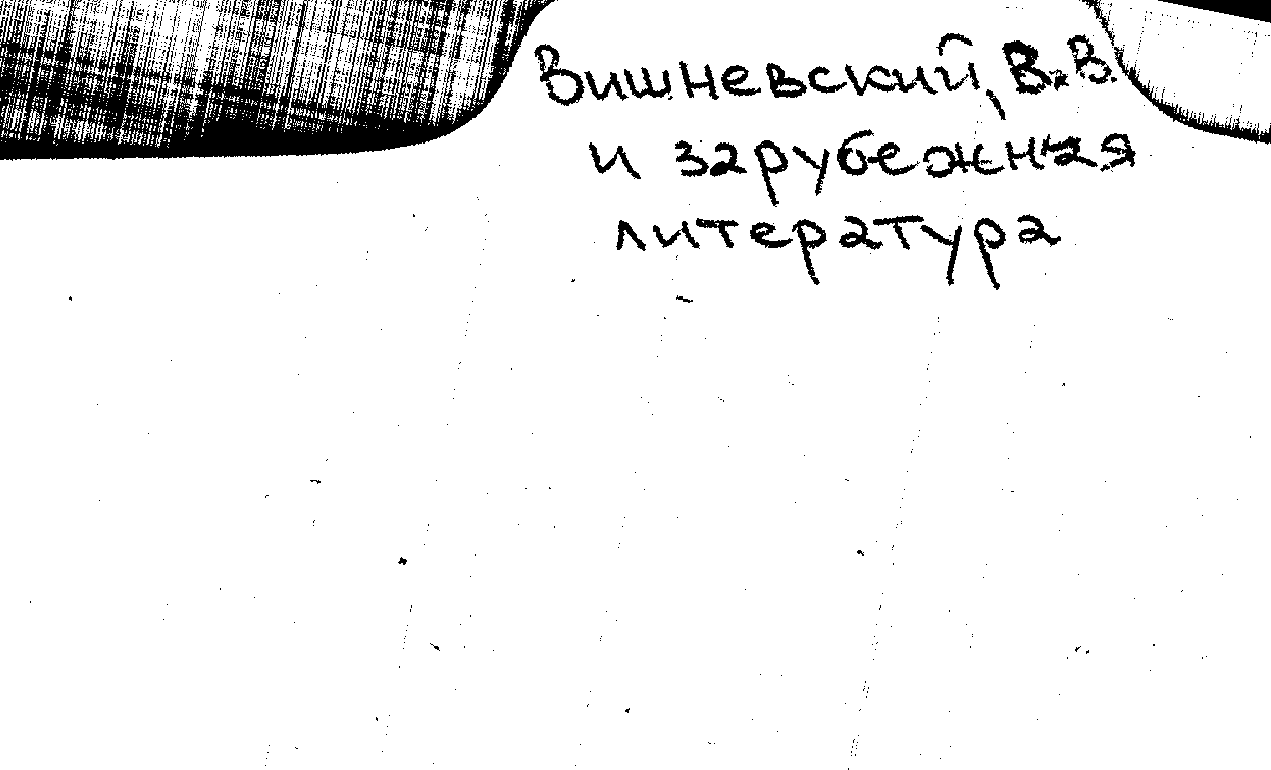 Вишневский, В.В.
и зарубежная
литература